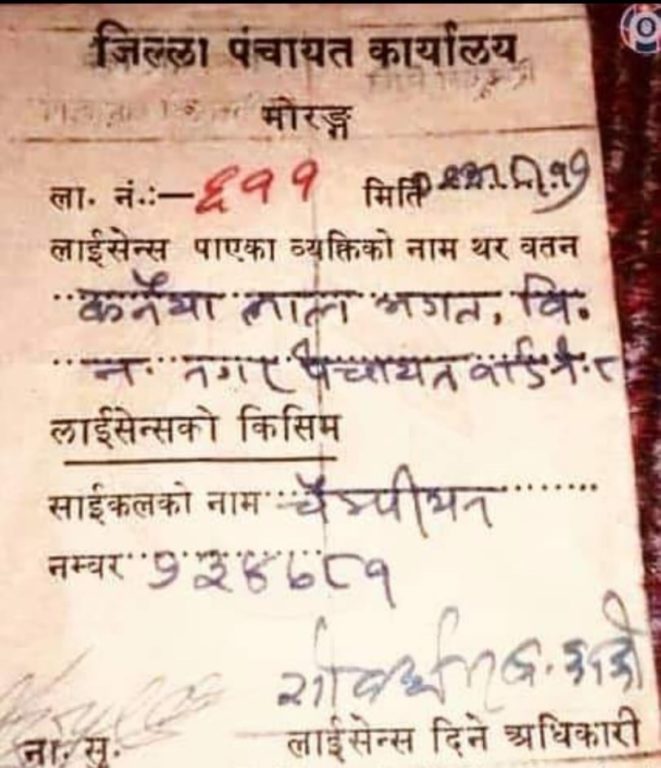 जिल्ला पंचायत कार्यालय
मोरङ्ग
ला. नं.:— ६११ मिति
लाईसेन्स पाएका व्यक्तिको नाम थर वतन
कनैया लाल भगत, वि.
न. नगर पंचायत वार्ड नं. ८
लाईसेन्सको किसिम
साईकलको नाम चैम्पीयन
नम्वर
ना. सु. लाईसेन्स दिने अधिकारी